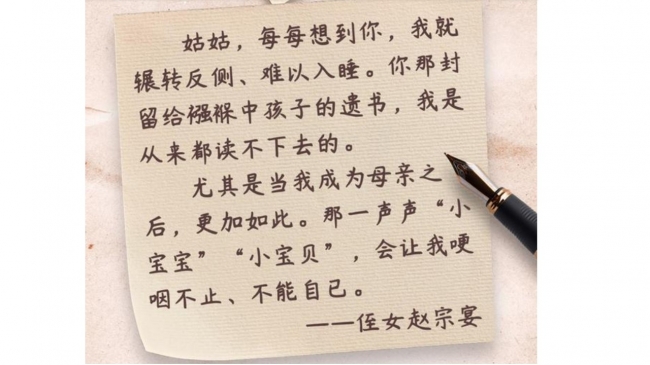 姑姑，每每想到你，我就
辗转反侧、难以入睡。你那封
留给襁褓中孩子的遗书，我是
从来都读不下去的。
尤其是当我成为母亲之
后，更加如此。那一声声“小
宝宝”“小宝贝”，会让我哽
咽不止、不能自已。
——侄女赵宗宴